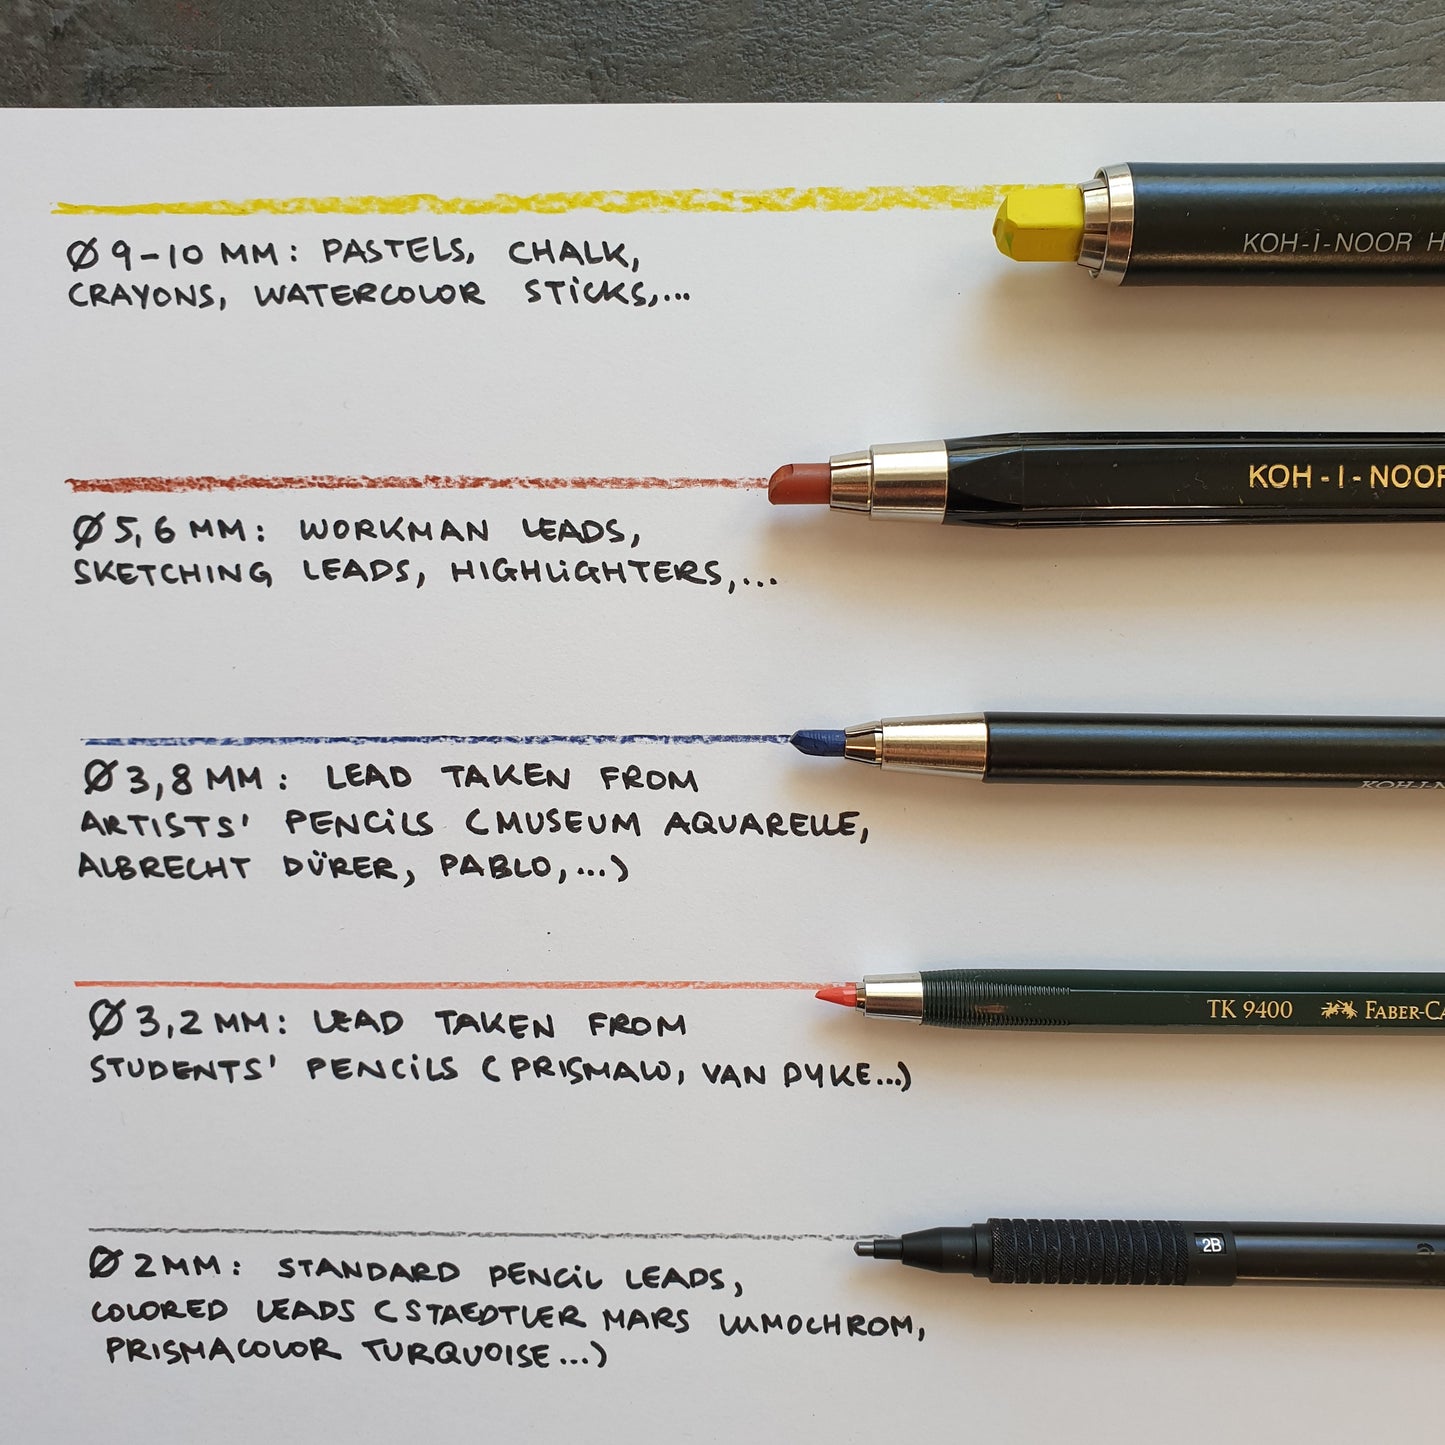 Ø 9-10 MM: PASTELS, CHALK,
CRAYONS, WATERCOLOR STICKS,...
KOH-I-NOOR H
Ø 5,6 MM: WORKMAN LEADS,
SKETCHING LEADS, HIGHLIGHTERS,...
KOH-I-NOOR
Ø 3,8 MM: LEAD TAKEN FROM
ARTISTS' PENCILS (MUSEUM AQUARELLE,
ALBRECHT DÜRER, PABLO,...)
KOH-I-N
Ø 3,2 MM: LEAD TAKEN FROM
STUDENTS' PENCILS (PRISMALO, VAN DYKE...)
TK 9400 FABER-CA
Ø 2 MM: STANDARD PENCIL LEADS,
COLORED LEADS (STAEDTLER MARS LUMOCHROM,
PRISMACOLOR TURQUOISE...)
2B